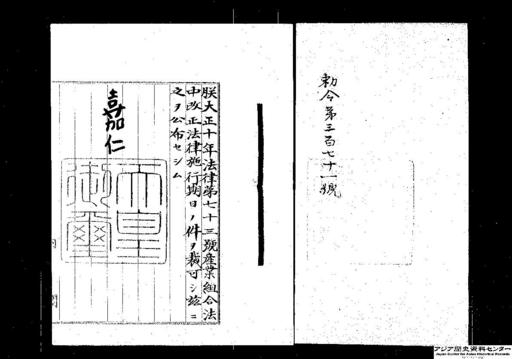 勅令第三百七十一號
朕大正十年法律第七十三號産業組合法
中改正法律施行期日ノ件ヲ裁可シ茲ニ
之ヲ公布セシム
嘉仁
天皇
御璽
アジア歴史資料センター
Japan Center for Asian Historical Records